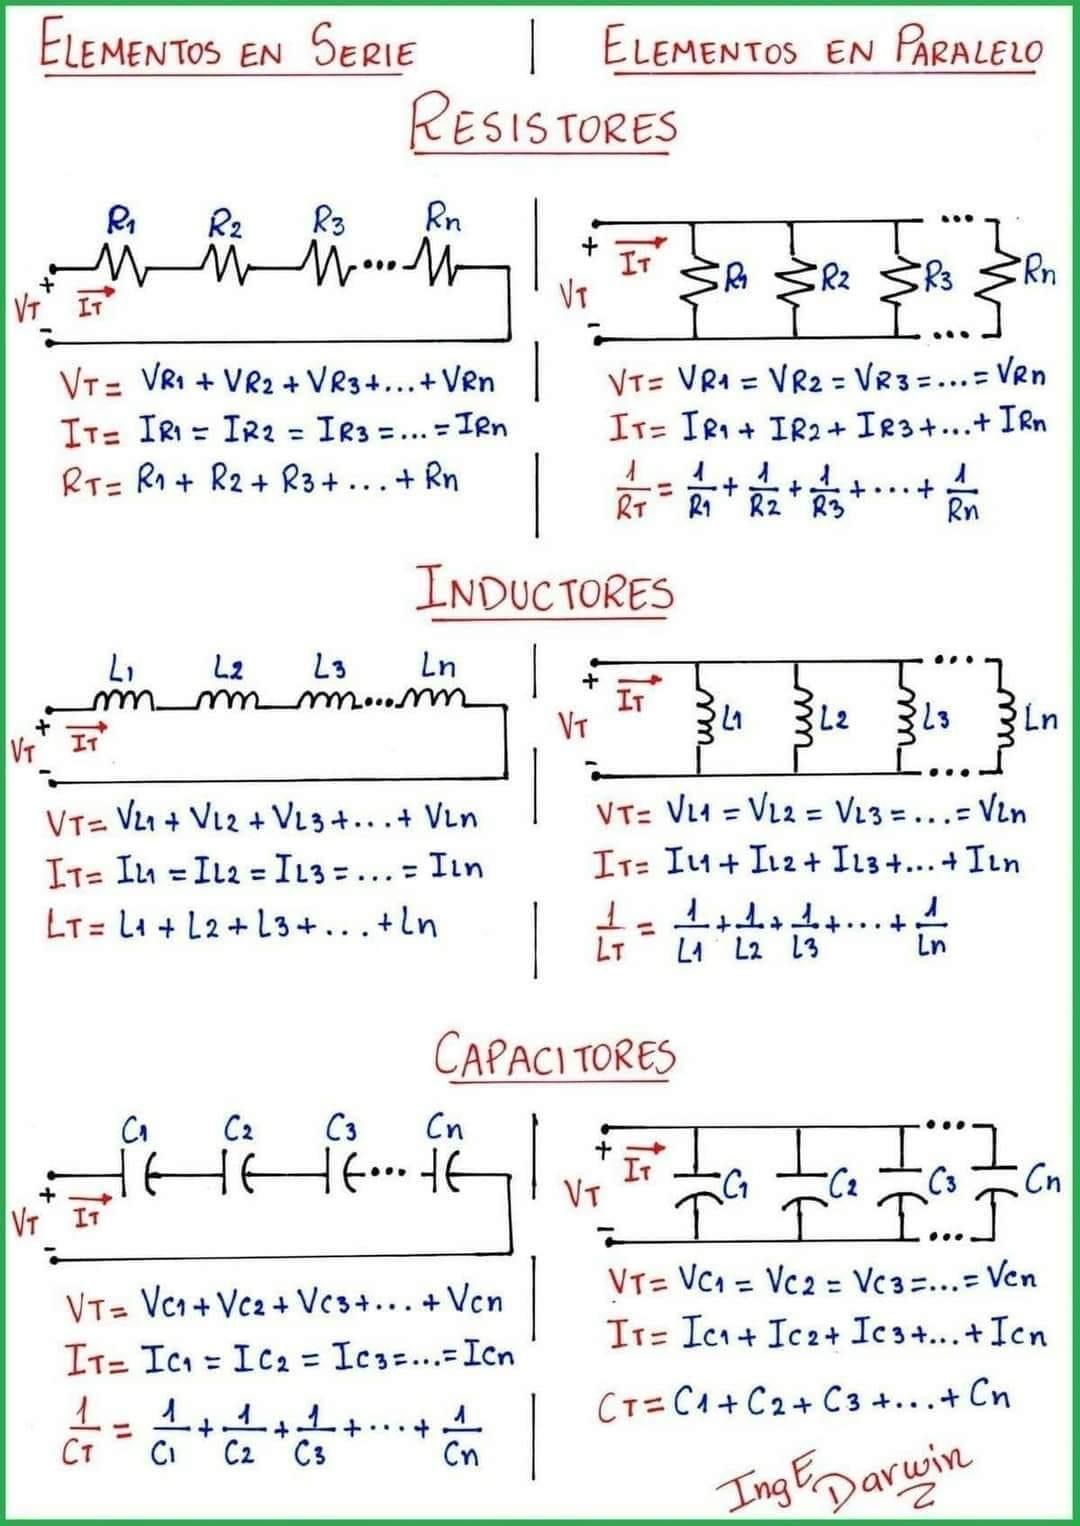 ELEMENTOS EN SERIE | ELEMENTOS EN PARALELO
RESISTORES
R1 R2 R3 ... Rn
+ VT - IT
VT = VR1 + VR2 + VR3 + ... + VRn
IT = IR1 = IR2 = IR3 = ... = IRn
RT = R1 + R2 + R3 + ... + Rn
+ VT - IT R1 R2 R3 ... Rn
VT = VR1 = VR2 = VR3 = ... = VRn
IT = IR1 + IR2 + IR3 + ... + IRn
1/RT = 1/R1 + 1/R2 + 1/R3 + ... + 1/Rn
INDUCTORES
L1 L2 L3 ... Ln
+ VT - IT
VT = VL1 + VL2 + VL3 + ... + VLn
IT = IL1 = IL2 = IL3 = ... = ILn
LT = L1 + L2 + L3 + ... + Ln
+ VT - IT L1 L2 L3 ... Ln
VT = VL1 = VL2 = VL3 = ... = VLn
IT = IL1 + IL2 + IL3 + ... + ILn
1/LT = 1/L1 + 1/L2 + 1/L3 + ... + 1/Ln
CAPACITORES
C1 C2 C3 ... Cn
+ VT - IT
VT = VC1 + VC2 + VC3 + ... + VCn
IT = IC1 = IC2 = IC3 = ... = ICn
1/CT = 1/C1 + 1/C2 + 1/C3 + ... + 1/Cn
+ VT - IT C1 C2 C3 ... Cn
VT = VC1 = VC2 = VC3 = ... = VCn
IT = IC1 + IC2 + IC3 + ... + ICn
CT = C1 + C2 + C3 + ... + Cn
IngE Darwin